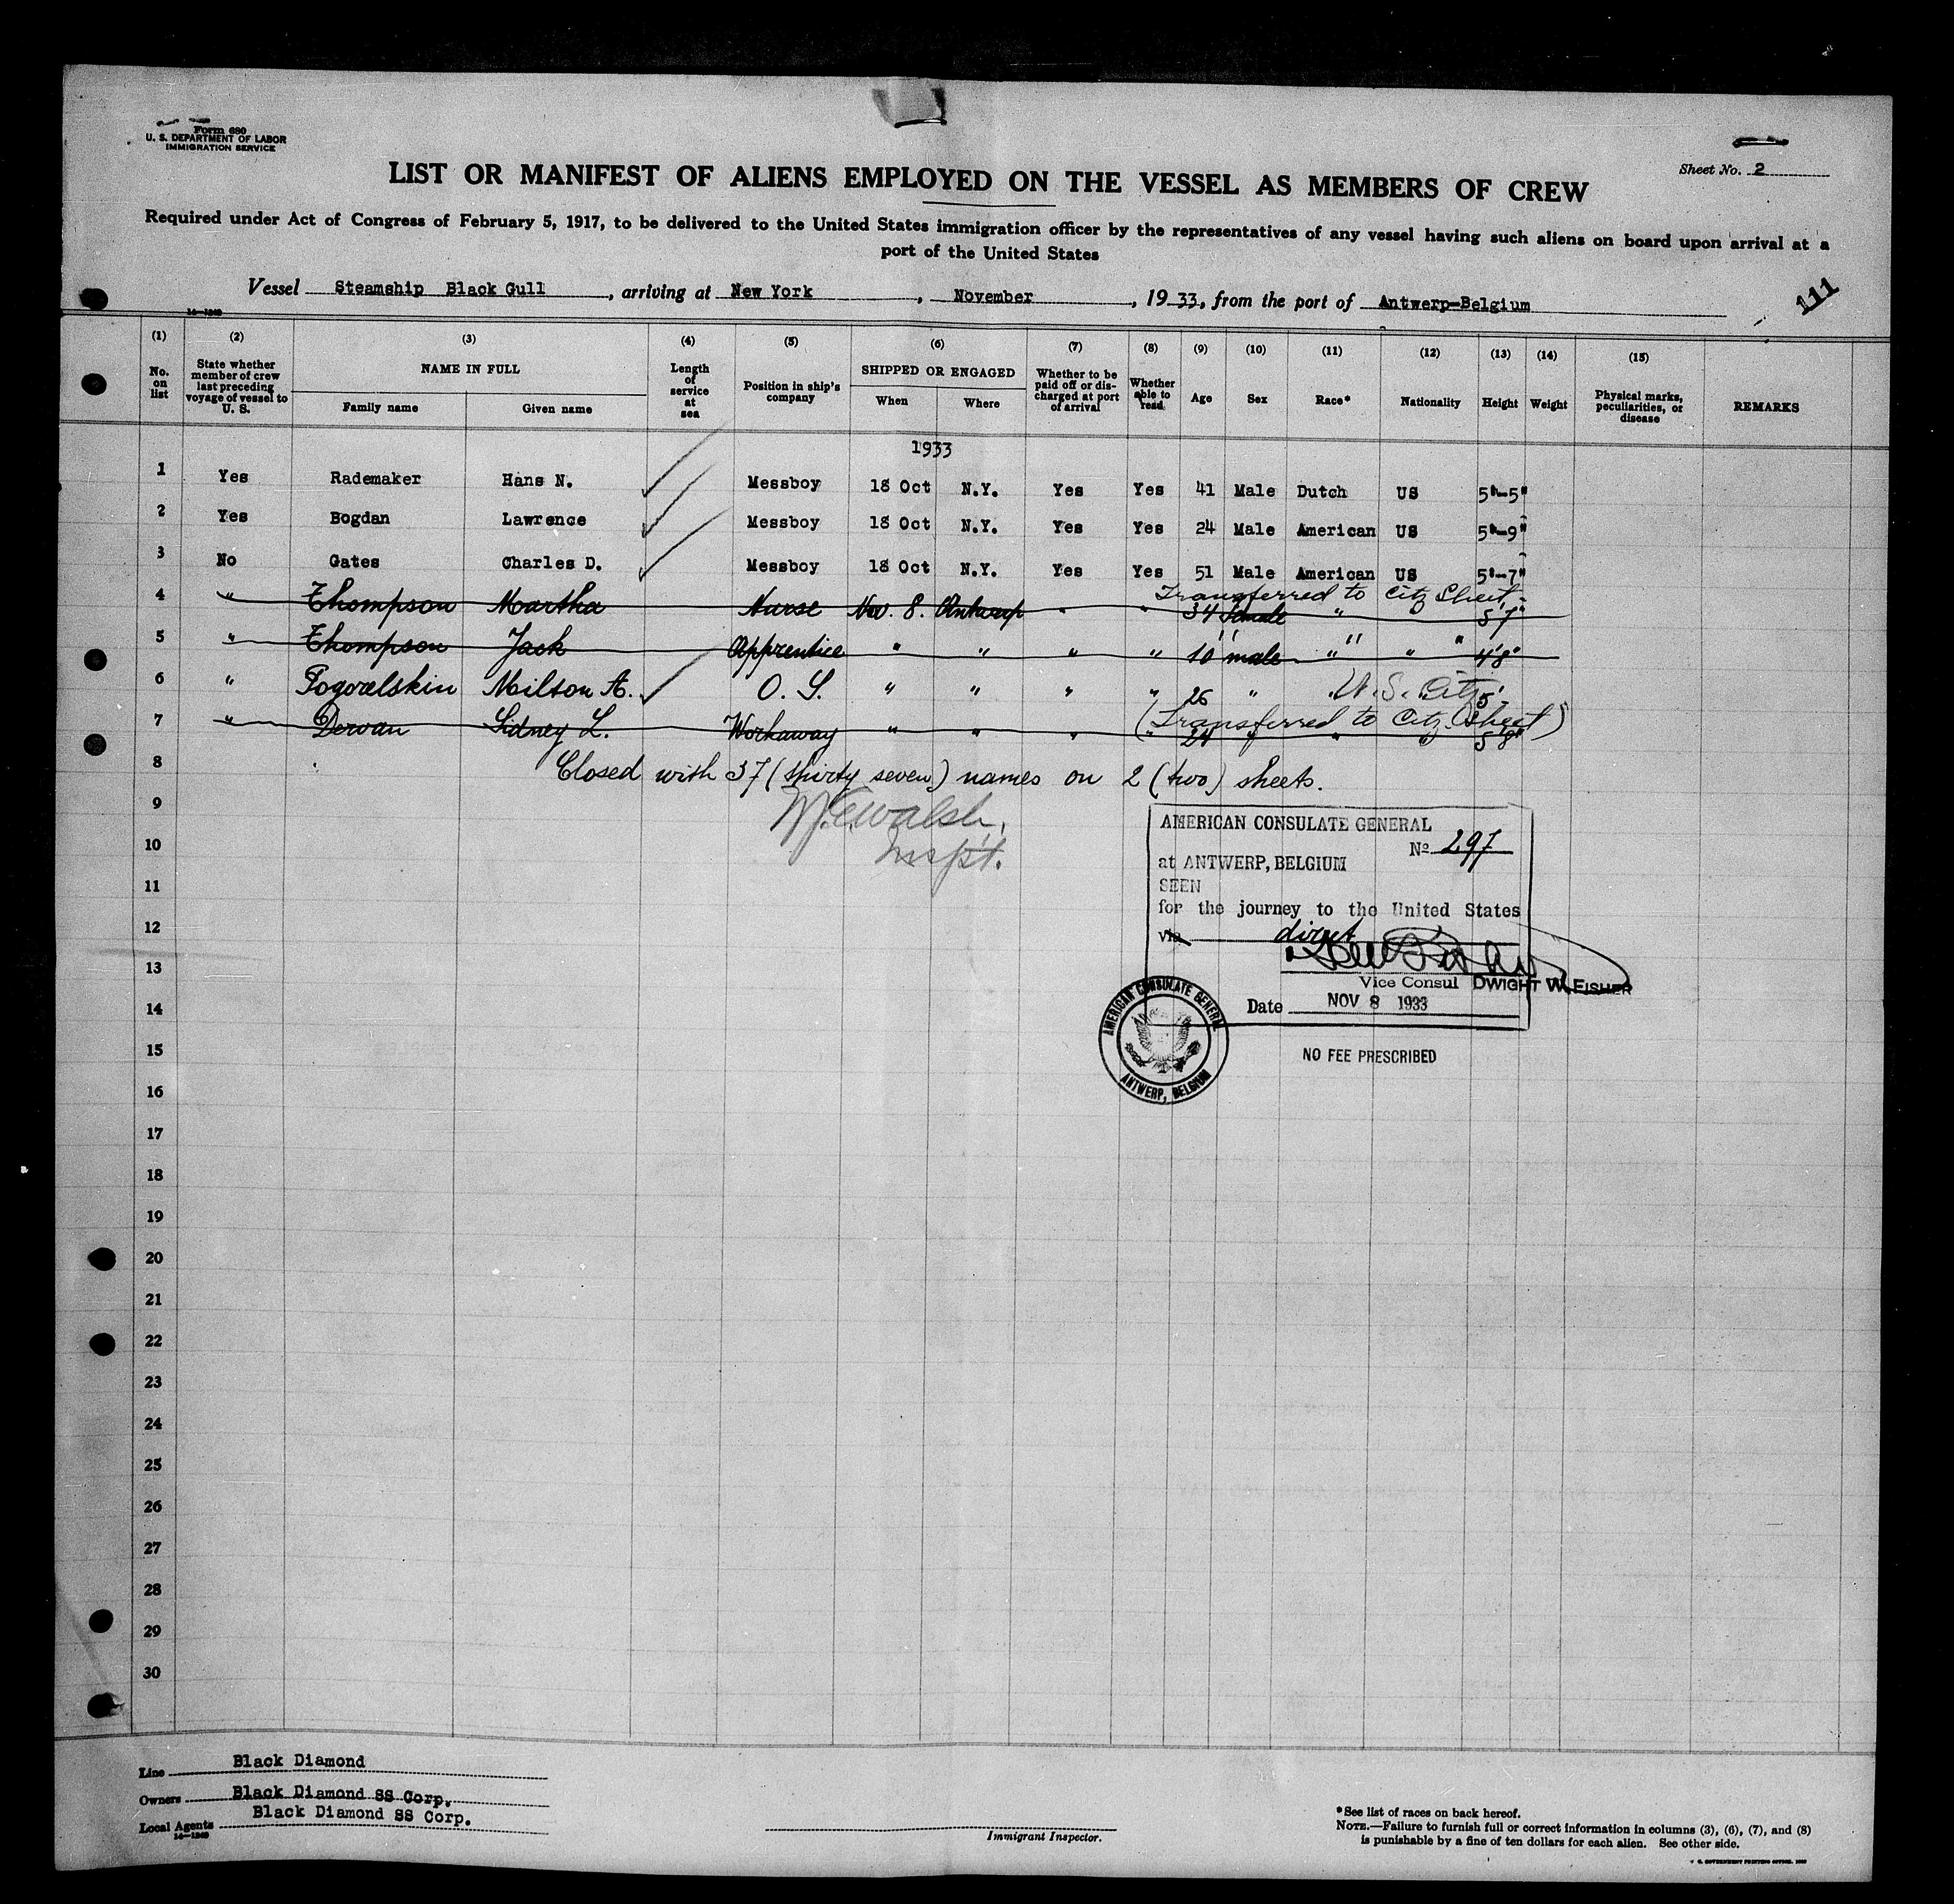 Form 680
U. S. DEPARTMENT OF LABOR
IMMIGRATION SERVICE
Sheet No. 2
LIST OR MANIFEST OF ALIENS EMPLOYED ON THE VESSEL AS MEMBERS OF CREW
Required under Act of Congress of February 5, 1917, to be delivered to the United States immigration officer by the representatives of any vessel having such aliens on board upon arrival at a
port of the United States
Vessel Steamship Black Gull, arriving at New York, November, 1933, from the port of Antwerp-Belgium
111
(1) (2) (3) (4) (5) (6) (7) (8) (9) (10) (11) (12) (13) (14) (15)
No. on list
State whether member of crew last preceding voyage of vessel to U. S.
NAME IN FULL
Family name Given name
Length of service at sea
Position in ship's company
SHIPPED OR ENGAGED
When Where
Whether to be paid off or discharged at port of arrival
Whether able to read
Age Sex Race* Nationality Height Weight
Physical marks, peculiarities, or disease
REMARKS
1933
1 Yes Rademaker Hans N. Messboy 18 Oct N.Y. Yes Yes 41 Male Dutch US 5'-5"
2 Yes Bogdan Lawrence Messboy 18 Oct N.Y. Yes Yes 24 Male American US 5'-9"
3 No Gates Charles D. Messboy 18 Oct N.Y. Yes Yes 51 Male American US 5'-7"
Transferred to Citz Sheet.
4 " Thompson Martha Nurse Nov. 8. Antwerp " " 34 female " " 5'7"
5 " Thompson Jack Apprentice " " " " 10 male " " " 4'8"
6 " Pogorelskin Milton A. O. S. " " " " 26 " U.S. Citz 5'
(Transferred to Citz Sheet)
7 " Derwan Sidney L. Workaway " " " " 24 " " " 5'8"
8 Closed with 37 (thirty seven) names on 2 (two) sheets.
9
Walsh,
10
Inspt.
AMERICAN CONSULATE GENERAL
No 297
at ANTWERP, BELGIUM
SEEN
for the journey to the United States
via direct
Vice Consul DWIGHT W. FISHER
Date NOV 8 1933
AMERICAN CONSULATE GENERAL
ANTWERP, BELGIUM
NO FEE PRESCRIBED
11
12
13
14
15
16
17
18
19
20
21
22
23
24
25
26
27
28
29
30
Line Black Diamond
Owners Black Diamond SS Corp.
Local Agents Black Diamond SS Corp.
14-1240
Immigrant Inspector.
*See list of races on back hereof.
NOTE.—Failure to furnish full or correct information in columns (3), (6), (7), and (8)
is punishable by a fine of ten dollars for each alien. See other side.